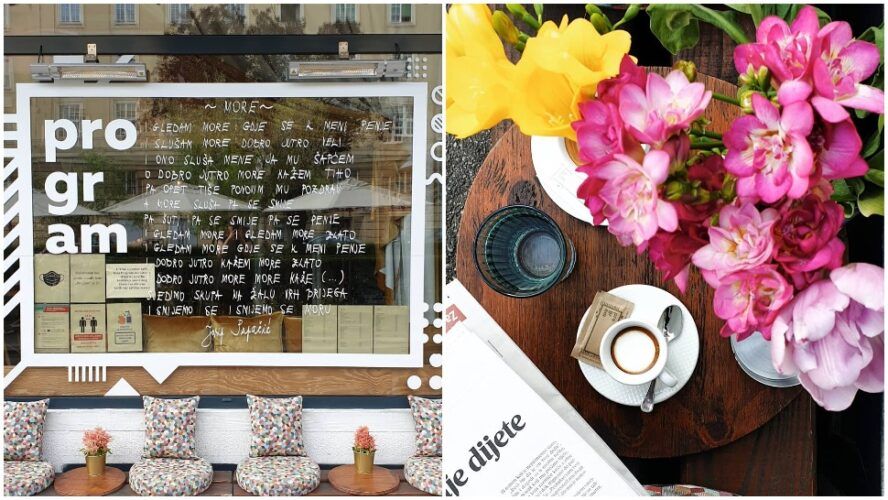 pro
gr
am
~ MORE ~
I GLEDAM MORE GDJE SE K MENI PENJE
I SLUŠAM MORE DOBRO JUTRO VELI
I ONO SLUŠA MENE JA MU ŠAPĆEM
O DOBRO JUTRO MORE KAŽEM TIHO
PA OPET TIŠE PONOVIM MU POZDRAV
A MORE SLUŠA PA SE SMIJE
PA ŠUTI PA SE SMIJE PA SE PENJE
I GLEDAM MORE I GLEDAM MORE ZLATO
I GLEDAM MORE GDJE SE K MENI PENJE
I DOBRO JUTRO KAŽEM MORE ZLATO
I DOBRO JUTRO MORE MORE KAŽE (...)
SJEDIMO SKUPA NA ŽALU VRH BRIJEGA
I SMIJEMO SE I SMIJEMO SE MORU
Josip Pupačić
je dijete